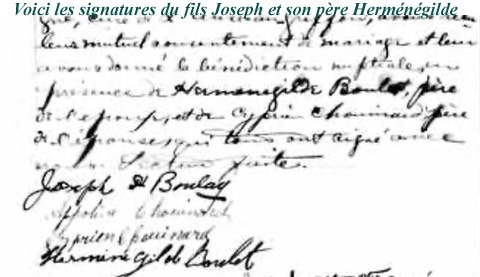 Voici les signatures du fils Joseph et son père Herménégilde
leur mutuel consentement de mariage et leur
avons donné la bénédiction nuptiale, en
présence de Hermenegilde Boulet, père
de l'époux, et de Cyprien Chouinard père
de l'épouse, qui tous ont signé avec
nous. Lecture faite.
Joseph H Boulay
Chouinard
Cyprien Chouinard
Herméné Gilde Boulet